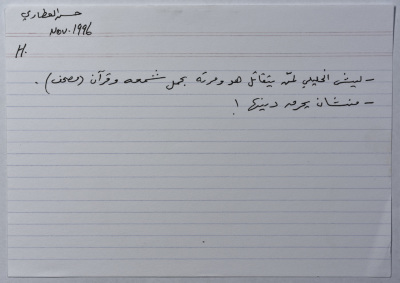 حسن العطاري
Nov. 1996
H.
- ليش الخليلي لمّه يتقاتل هو ومرته بحمل شمعه وقرآن (مصحف).
- منشان يحرق دينها !